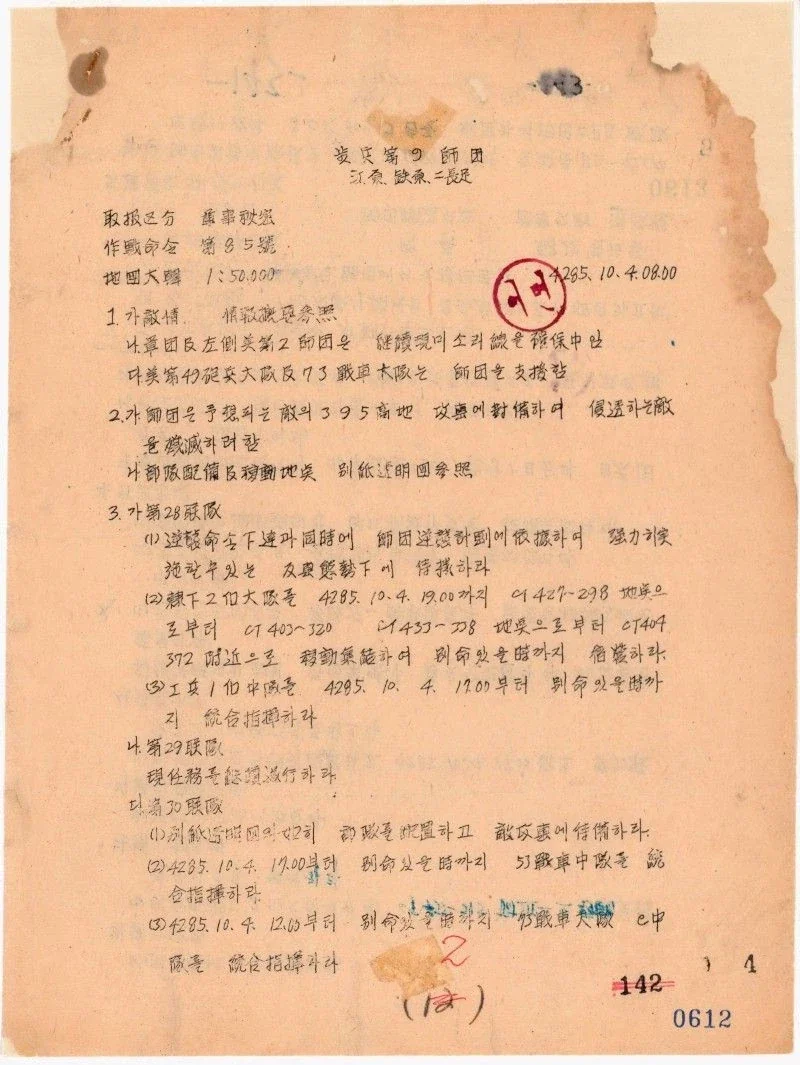 步兵第9師団
江原 鉄原
取扱区分 軍事秘密
作戰命令 第85號
地图大韓 1:50,000
4285.10.4.08.00
1.가 敵情. 情報擴張參照
나.軍団及左側美第2師団은 継續現미소리線을 確保中임
다.美第49砲兵大隊及73戰車大隊는 師団을 支援함
2.가 師団은 予想되는 敵의 395高地 攻擊에 對備하여 侵透하는敵
을 殲滅하려함
나.部隊配備及移動地点 別紙透明図參照
3.가 第28联隊
(1)逆襲命令下達과 同時에 師団逆襲計劃에 依據하여 强力히 実
施할수있는 態勢下에 待機하라
(2)隷下2個大隊를 4285.10.4.19.00까지 CT427~298 地点으
로부터 CT403~320 CT433~338 地点으로부터 CT404
372 附近으로 移動集結하여 別命있을時까지 待機하라.
(3)工兵1個中隊를 4285. 10. 4. 17.00부터 別命있을時까
지 統合指揮하라
나.第29联隊
現任務를 継續遂行하라
다.第30联隊
(1)別紙透明図와如히 部隊를 配置하고 敵攻擊에待備하라.
(2)4285.10.4. 17.00부터 別命있을時까지 53戰車中隊를 統
合指揮하라
(3)4285.10.4. 12.00부터 別命있을時까지 73戰車大隊 C中
隊를 統合指揮하라
2
142
4
0612